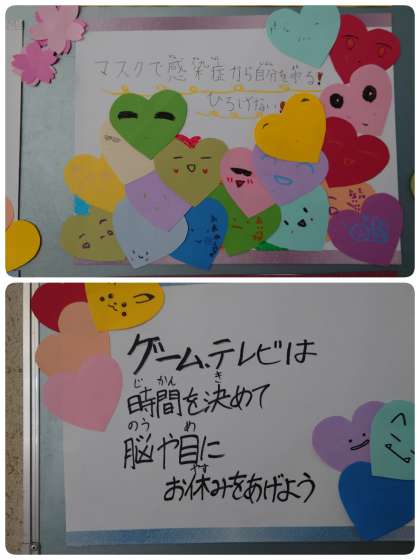 マスクで感染症から自分を守る！
ひろげない！
ゲーム、テレビは
じかん き
時間を決めて
のう め
脳や目に
やす
お休みをあげよう